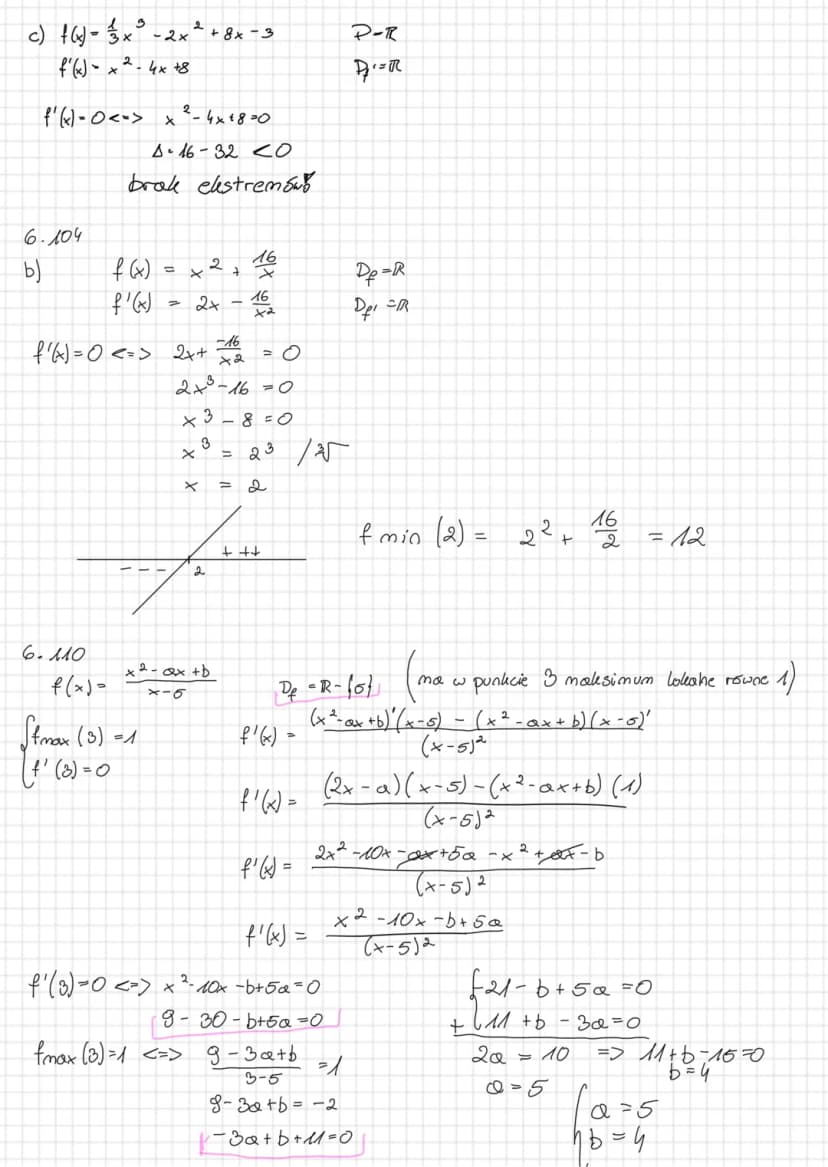 c) f(x) = 1/3 x³ - 2x² + 8x - 3 D = ℝ
f'(x) = x² - 4x + 8 Df' = ℝ
f'(x) = 0 <=> x² - 4x + 8 = 0
Δ = 16 - 32 < 0
brak ekstremów!
6.104
b) f(x) = x² + 16/x Df = ℝ
f'(x) = 2x - 16/x² Df' = ℝ
f'(x) = 0 <=> 2x + -16/x² = 0
2x³ - 16 = 0
x³ - 8 = 0
x³ = 2³ / ∛
x = 2
+ ++
- - - 2
f min (2) = 2² + 16/2 = 12
6.110
f(x) = (x² - ax + b)/(x - 5) Df = ℝ - {5} (ma w punkcie 3 maksimum lokalne równe 1)
{ fmax (3) = 1
{ f'(3) = 0
f'(x) = ((x² - ax + b)'(x - 5) - (x² - ax + b)(x - 5)')/(x - 5)²
f'(x) = ((2x - a)(x - 5) - (x² - ax + b)(1))/(x - 5)²
f'(x) = (2x² - 10x - ax + 5a - x² + ax - b)/(x - 5)²
f'(x) = (x² - 10x - b + 5a)/(x - 5)²
f'(3) = 0 <=> x² - 10x - b + 5a = 0
9 - 30 - b + 5a = 0
fmax (3) = 1 <=> (9 - 3a + b)/(3 - 5) = 1
9 - 3a + b = -2
-3a + b + 11 = 0
{ -21 - b + 5a = 0
+ { 11 + b - 3a = 0
2a = 10 => 11 + b - 15 = 0
a = 5 b = 4
{ a = 5
{ b = 4